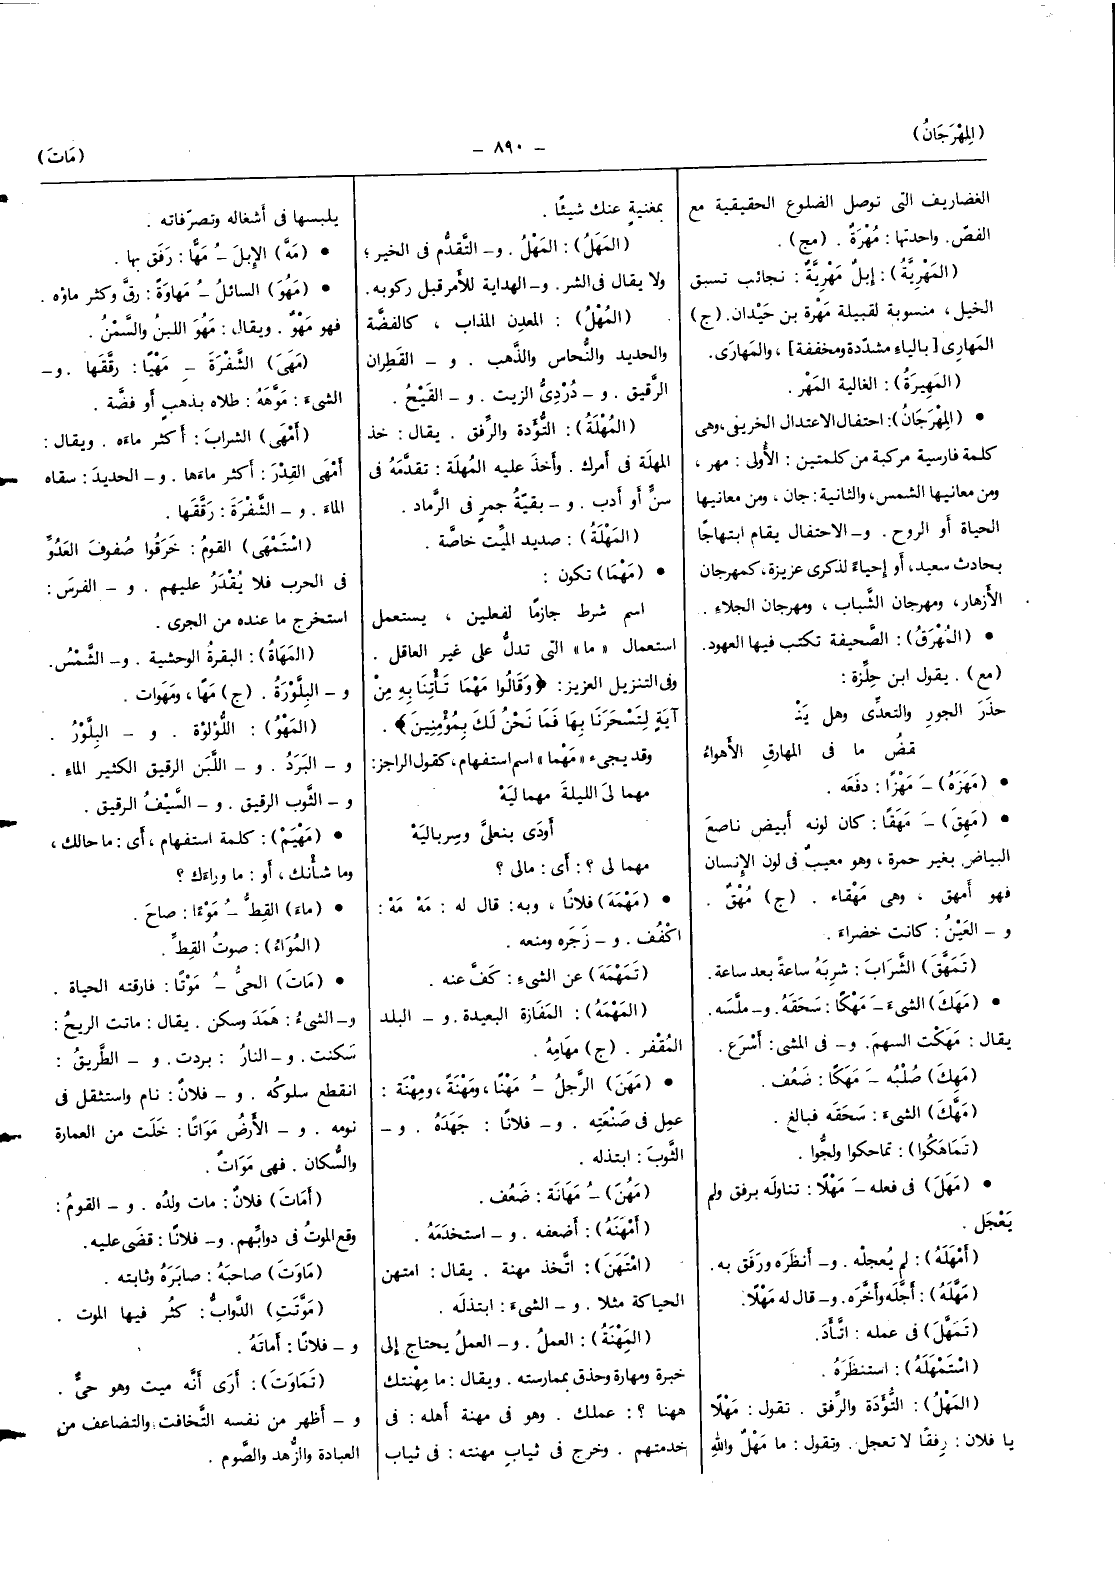 (المِهْرَجَانُ)
— ٨٩٠ —
(مَاتَ)
الغضاريف التى توصل الضلوع الحقيقية مع
القصّ. واحدتها: مُهْرَةٌ . (مج) .
(المَهْرِيَّةُ): إبلٌ مَهْرِيَّةٌ : نجائب تسبق
الخيل ، منسوبة لقبيلة مَهْرة بن حَيْدان. (ج)
المَهارِى [ بالياءِ مشدّدة ومخففة ] ، والمَهارَى.
(المَهِيرَةُ) : الغالية المَهْر .
• (المِهْرَجَانُ): احتفال الاعتدال الخريفى ، وهى
كلمة فارسية مركبة من كلمتين : الأُولى : مهر ،
ومن معانيها الشمس ، والثانية : جان ، ومن معانيها
الحياة أو الروح . و- الاحتفال يقام ابتهاجًا
بحادث سعيد ، أو إحياءً لذكرى عزيزة ، كمهرجان
الأزهار ، ومهرجان الشَّباب ، ومهرجان الجلاءِ .
• (المُهْرَقُ): الصَّحيفة تكتب فيها العهود.
(مع) . يقول ابن حِلِّزة :
حذَرَ الجورِ والتعدِّى وهل يَنْـ
قضُ ما فى المهارقِ الأَهواءُ
• (مَهَزَهُ) – مَهْزًا : دفَعَه .
• (مَهِقَ) – مَهَقًا : كان لونه أبيض ناصعَ
البياض بغير حمرة ، وهو معيبٌ فى لون الإنسان
فهو أمهق ، وهى مَهْقاء . (ج) مُهْقٌ .
و – العَيْنُ : كانت خضراءَ .
(تَمَهَّقَ) الشَّرابَ : شرِبَهُ ساعةً بعد ساعة.
• (مَهَكَ) الشىءَ – مَهْكًا : سَحَقَهُ. و– ملَّسَه.
يقال : مَهَكْت السهمَ . و– فى المشى : أَسْرَع .
(مَهِكَ) صُلْبُه – مَهَكًا : ضَعُف .
(مَهَّكَ) الشىءَ : سَحَقَه فبالغ .
(تَمَاهَكُوا) : تماحكوا ولجُّوا .
• (مَهَلَ) فى فعله – مَهْلًا : تناولَه برفق ولم
يَعْجَل .
(أَمْهَلَهُ) : لم يُعجلْه . و– أنظَرَه ورَفَق به .
(مَهَّلَهُ) : أجَّلَه وأخَّرَه. و– قال له مَهْلًا.
(تَمَهَّلَ) فى عمله : اتَّأَدَ.
(اسْتَمْهَلَهُ) : استنظَرَهُ .
(المَهْلُ) : التُّؤَدَة والرِّفق . تقول : مَهْلًا
يا فلان : رِفقًا لا تعجل . وتقول : ما مَهْلٌ واللهِ
بمغنيةٍ عنك شيئًا .
(المَهَلُ) : المَهْلُ . و– التَّقدُّم فى الخير ؛
ولا يقال فى الشر . و– الهداية للأَمر قبل ركوبه.
(المُهْلُ) : المعدِن المذاب ، كالفضَّة
والحديد والنُّحاس والذَّهب . و – القَطِران
الرَّقيق . و – دُرْدِىُّ الزيت . و – القَيْحُ .
(المُهْلَةُ) : التُّؤَدة والرِّفق . يقال : خذ
المهلة فى أمرك . وأخذَ عليه المُهلَة : تقدَّمَهُ فى
سنٍّ أو أدب . و – بقيّةُ جمرٍ فى الرَّماد .
(المَهْلَةُ) : صديد الميِّت خاصَّة .
• (مَهْمَا) تكون :
اسم شرط جازمًا لفعلين ، يستعمل
استعمال « ما » التى تدلُّ على غير العاقل .
وفى التنزيل العزيز : ﴿ وَقَالُوا مَهْمَا تَأْتِنَا بِهِ مِنْ
آيَةٍ لِتَسْحَرَنَا بِهَا فَمَا نَحْنُ لَكَ بِمُؤْمِنِينَ ﴾ .
وقد يجىء « مَهْما » اسم استفهام ، كقول الراجز :
مهما لىَ الليلةَ مهما ليَهْ
أَودَى بنعلىَّ وسِرباليَهْ
مهما لى ؟ : أى : مالى ؟
• (مَهْمَهَ) فلانًا ، وبه : قال له : مَهْ مَهْ :
اكْفُف . و – زَجَره ومنعه .
(تَمَهْمَهَ) عن الشىءِ : كَفَّ عنه .
(المَهْمَهُ) : المَفَازة البعيدة . و – البلد
المُقْفر . (ج) مَهامِهُ .
• (مَهَنَ) الرَّجلُ – مَهْنًا ، ومَهْنَةً ، ومِهْنَة :
عمِل فى صَنْعَتِه . و– فلانًا : جَهَدَهُ . و –
الثَّوبَ : ابتذله .
(مَهُنَ) – مَهَانَة : ضَعُف .
(أَمْهَنَهُ) : أضعفه . و – استخدَمَهُ .
(امْتَهَنَ) : اتَّخذ مهنة . يقال : امتهن
الحياكة مثلا . و – الشىءَ : ابتذلَه .
(المِهْنَةُ) : العملُ . و– العملُ يحتاج إلى
خبرة ومهارة وحذق بممارسته . ويقال : ما مِهْنتك
ههنا ؟ : عملك . وهو فى مهنة أهله : فى
خدمتهم . وخرج فى ثيابِ مهنته : فى ثياب
يلبسها فى أشغاله وتصرّفاته .
• (مَهَّ) الإبلَ – مَهًّا : رَفَق بها .
• (مَهُوَ) السائلُ – مَهاوَةً : رقَّ وكثر ماؤه .
فهو مَهْوٌ . ويقال : مَهُوَ اللبنُ والسَّمْنُ .
(مَهَى) الشَّفْرَةَ – مَهْيًا : رَقَّقَها . و–
الشىءَ : مَوَّهَهُ : طلاه بذهبٍ أو فضَّة .
(أَمْهَى) الشرابَ : أكثر ماءَه . ويقال :
أَمْهَى القِدْرَ : أكثر ماءَها . و– الحديدَ : سقاه
الماءَ . و – الشَّفْرَةَ : رَقَّقَها .
(اسْتَمْهَى) القومُ : خَرَقُوا صُفوفَ العَدُوِّ
فى الحرب فلا يُقْدَرُ عليهم . و – الفرسَ :
استخرج ما عنده من الجرى .
(المَهَاةُ) : البقرةُ الوحشية . و– الشَّمْسُ.
و – البِلَّوْرَةُ . (ج) مَهًا ، ومَهَوات .
(المَهْوُ) : اللُّؤلؤة . و – البِلَّوْرُ .
و – البَرَدُ . و – اللَّبَن الرقيق الكثير الماءِ .
و – الثَّوب الرقيق . و – السَّيْفُ الرقيق .
• (مَهْيَمْ) : كلمة استفهام ، أى : ما حالك ،
وما شأنك ، أو : ما وراءَك ؟
• (ماءَ) القِطُّ – مَوْءًا : صاحَ .
(المُوَاءُ) : صوتُ القِطِّ .
• (مَاتَ) الحىُّ – مَوْتًا : فارقته الحياة .
و– الشىءُ : هَمَدَ وسكن . يقال : ماتت الريحُ :
سَكنت . و– النارُ : بردت . و – الطَّريقُ :
انقطع سلوكُه . و – فلانٌ : نام واستثقل فى
نومه . و – الأَرضُ مَوَاتًا : خلَت من العمارة
والسُّكان . فهى مَوَاتٌ .
(أَمَاتَ) فلانٌ : مات ولدُه . و – القومُ :
وقع الموتُ فى دوابِّهم . و– فلانًا : قضَى عليه.
(مَاوَتَ) صاحبَهُ : صابَرَهُ وثابته .
(مَوَّتَتِ) الدَّوابُّ : كثُر فيها الموت .
و – فلانًا : أماتَهُ .
(تَمَاوَتَ) : أرَى أنَّه ميت وهو حىٌّ .
و – أظهر من نفسه التَّخافت والتضاعف من
العبادة والزُّهد والصَّوم .